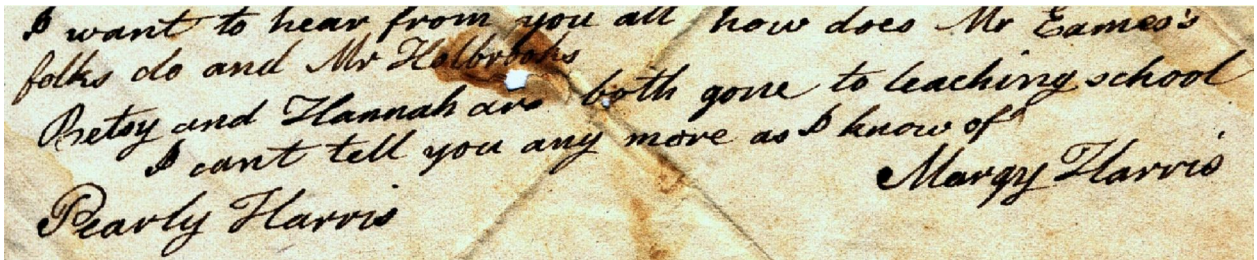 I want to hear from you all how does Mr Eames's
folks do and Mr Holbrooks
Betsy and Hannah are both gone to teaching school
I cant tell you any more as I know of
Margy Harris
Pearly Harris